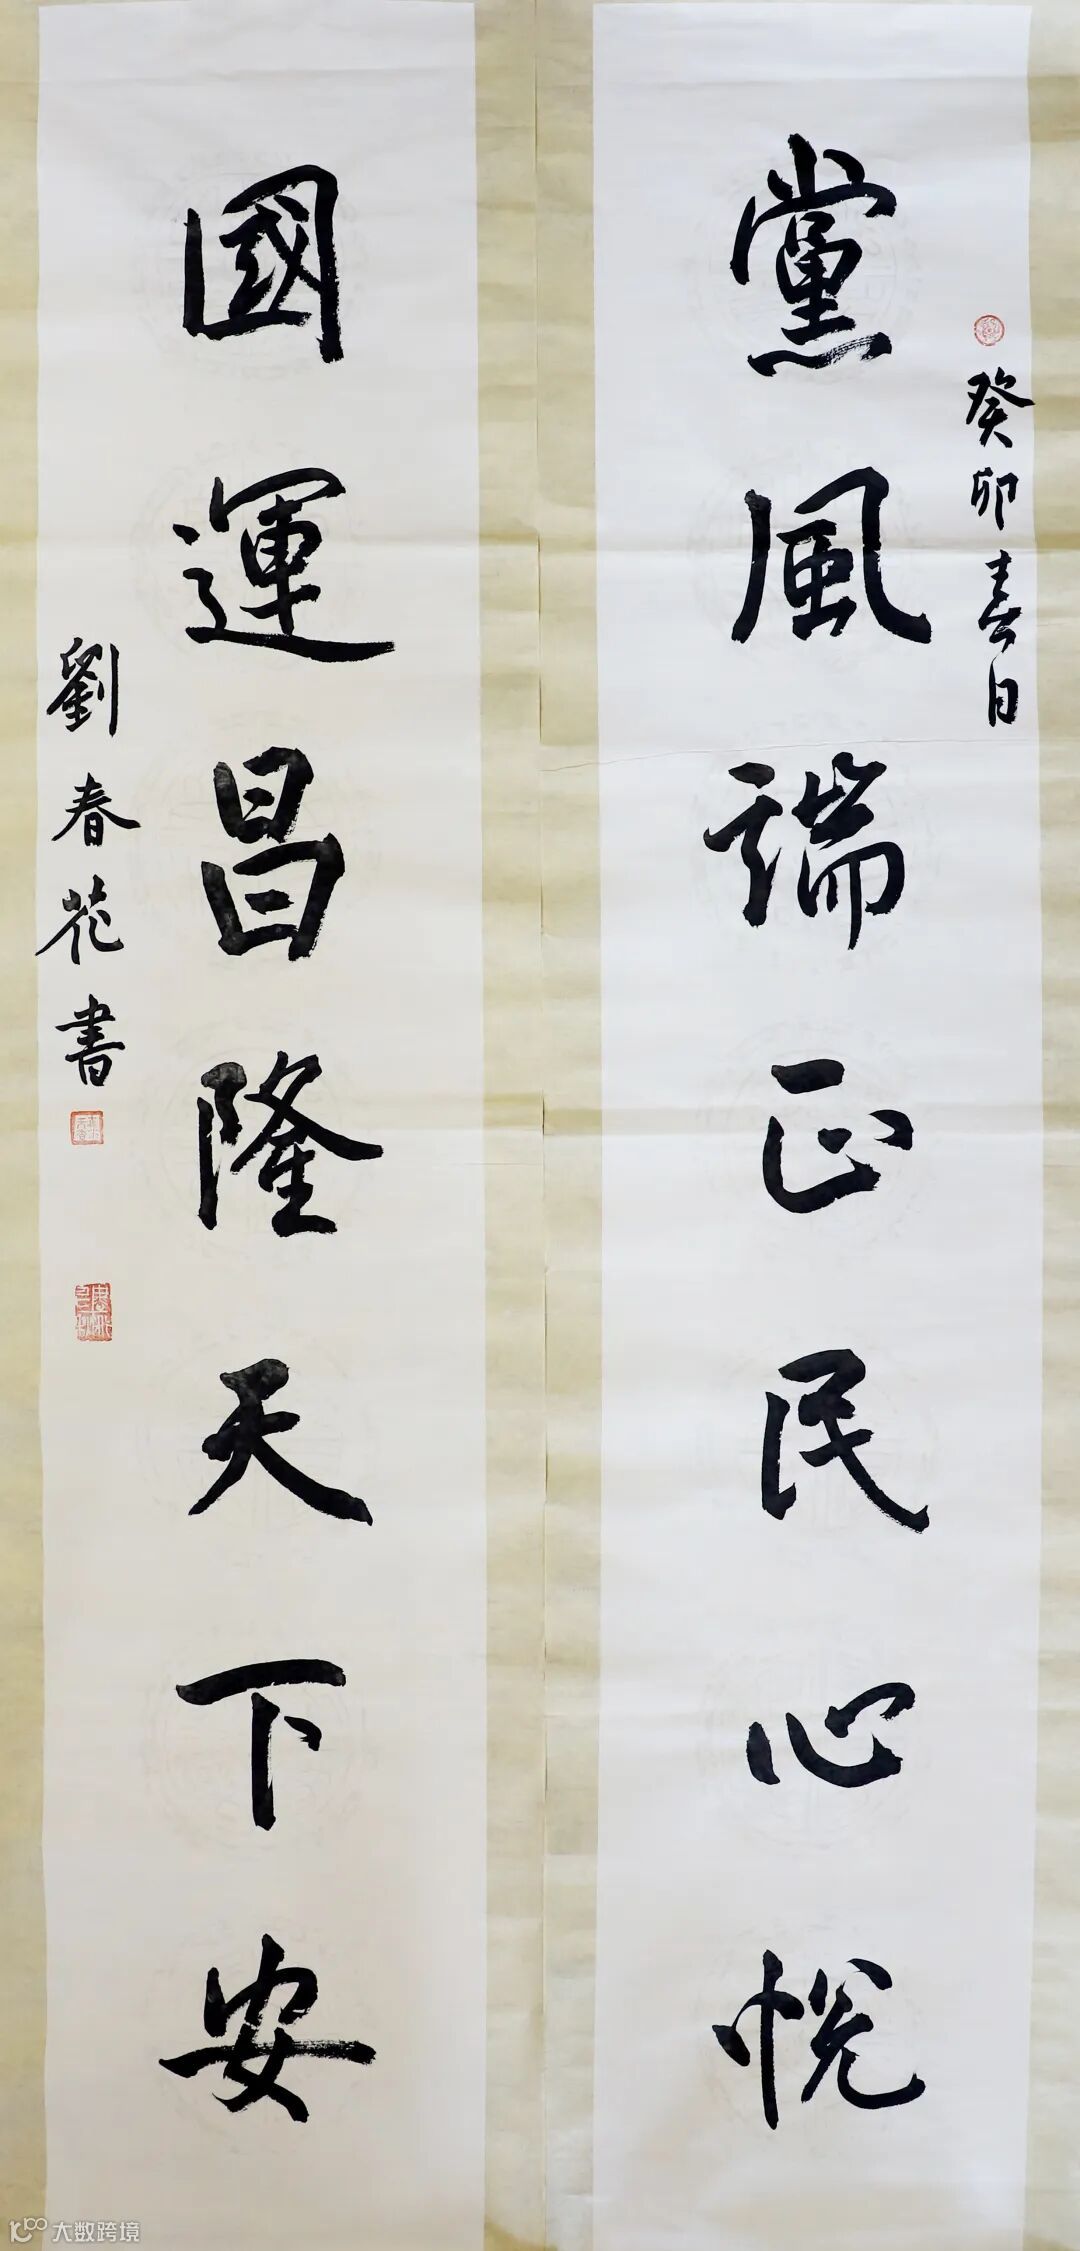 黨風端正民心悅
癸卯春日
國運昌隆天下安
劉春花書
大数跨境